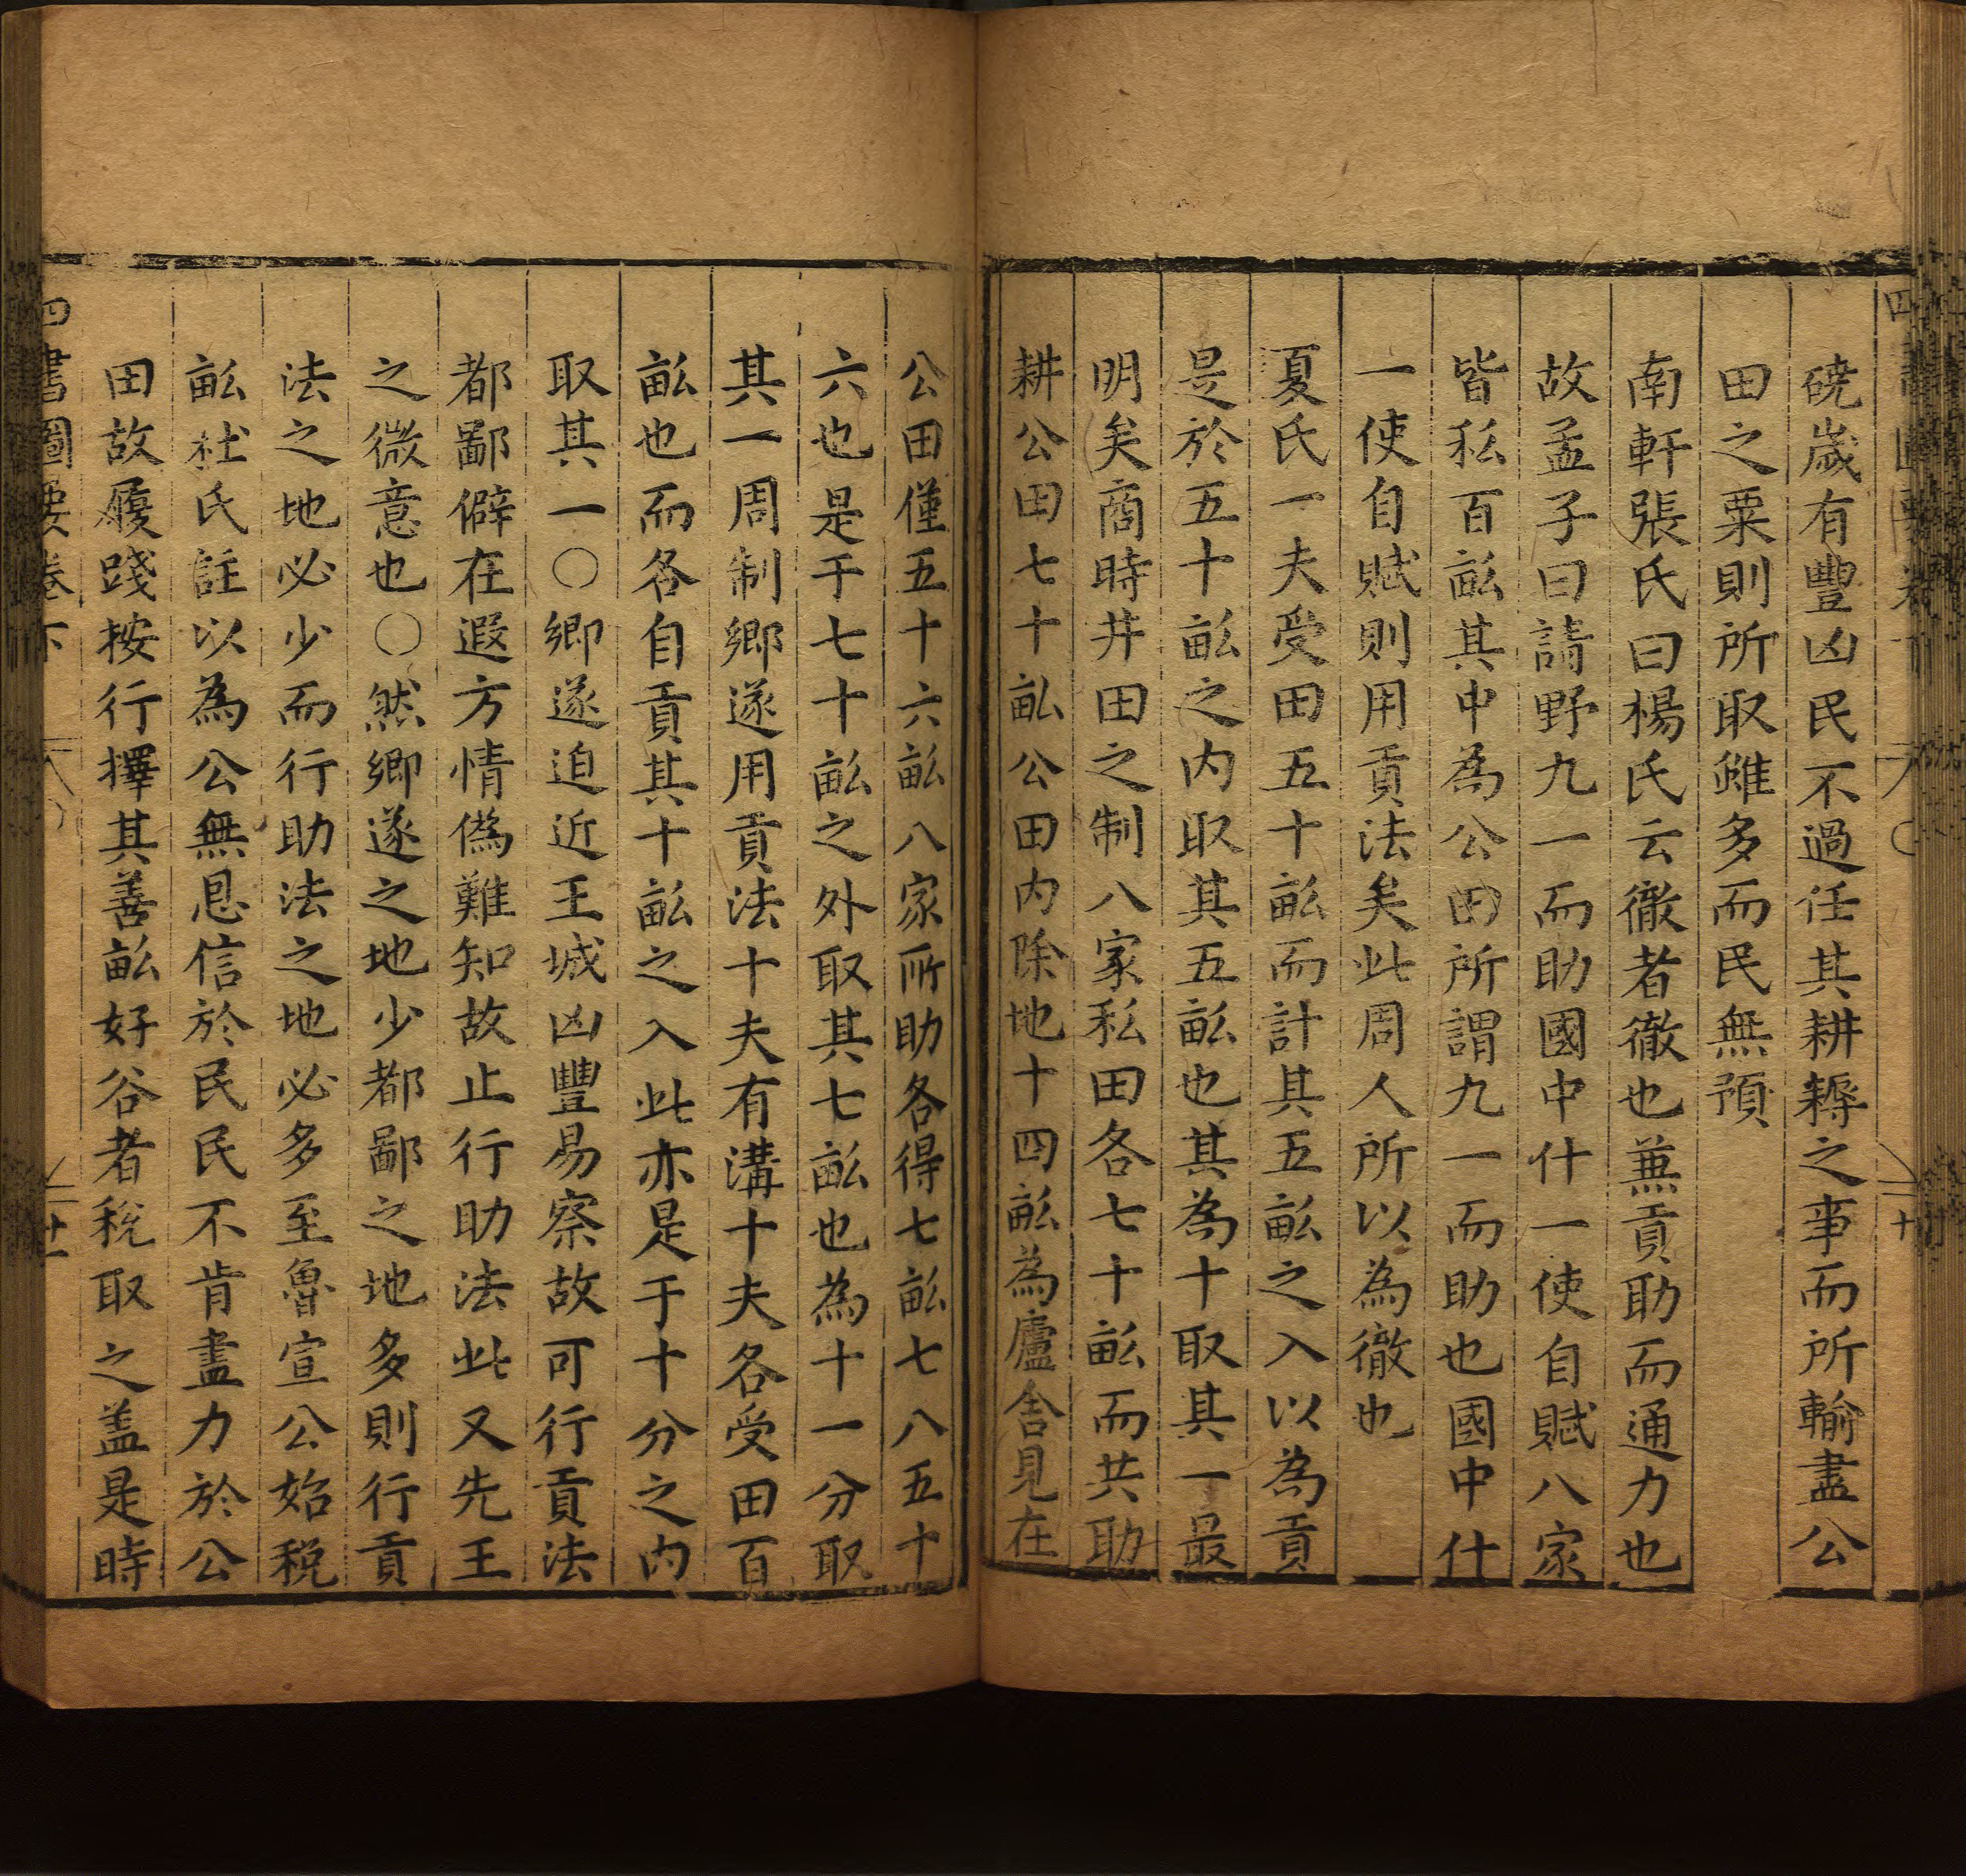 磽歲有豐凶民不過任其耕耨之事而所輸盡公
田之粟則所取雖多而民無預
南軒張氏曰楊氏云徹者徹也兼貢助而通力也
故孟子曰請野九一而助國中什一使自賦八家
皆私百畝其中為公田所謂九一而助也國中什
一使自賦則用貢法矣此周人所以為徹也
夏氏一夫受田五十畝而計其五畝之入以為貢
是於五十畝之内取其五畝也其為十取其一最
明矣商時井田之制八家私田各七十畝而共助
耕公田七十畝公田内除地十四畝為廬舍見在
公田僅五十六畝八家所助各得七畝七八五十
六也是于七十畝之外取其七畝也為十一分取
其一周制鄉遂用貢法十夫有溝十夫各受田百
畝也而各自貢其十畝之入此亦是于十分之内
取其一○鄉遂迫近王城凶豐易察故可行貢法
都鄙僻在遐方情偽難知故止行助法此又先王
之微意也○然鄉遂之地少都鄙之地多則行貢
法之地必少而行助法之地必多至魯宣公始稅
畝杜氏註以為公無恩信於民民不肯盡力於公
田故履踐按行擇其善畝好谷者稅取之盖是時
四書圖要卷下